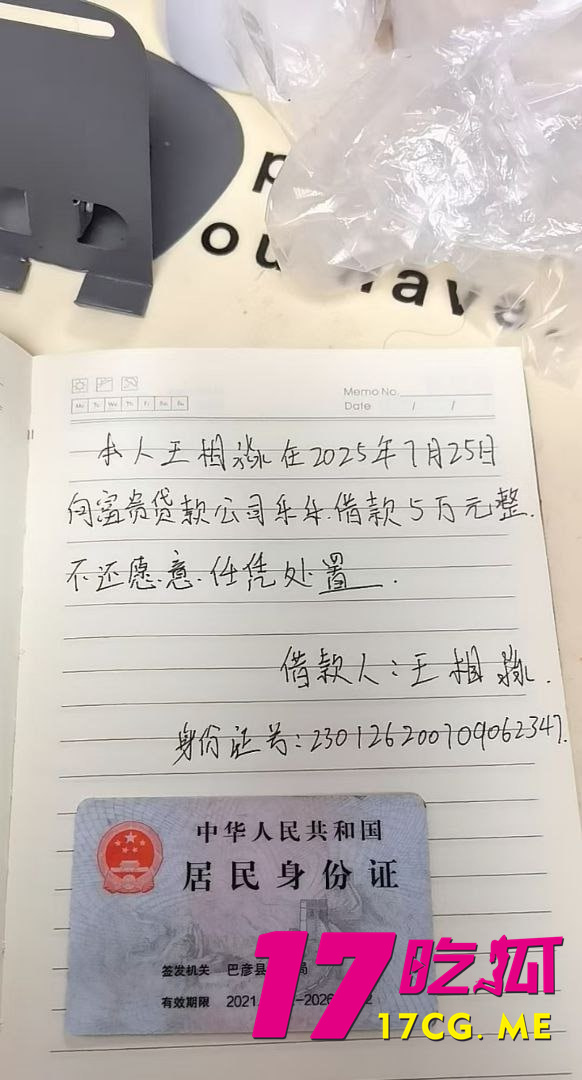 Memo No.
Date / /
Mo Tu We Th Fr Sa Su
本人[姓名略]在2025年7月25日
向富贵贷款公司乐乐借款5万元整.
不还愿意任凭处置.
借款人:[姓名略].
身份证号:[号码略].
中华人民共和国
居民身份证
签发机关 巴彦县
有效期限 2021
17吃瓜
17CG.ME